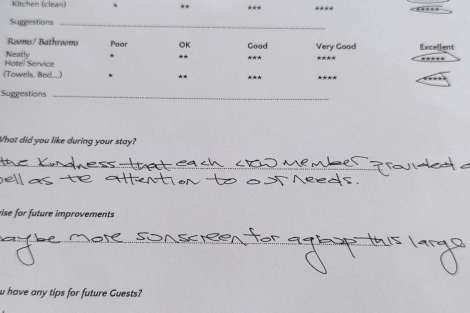 Kitchen (clean) * ** *** **** *****
Suggestions
Rooms/ Bathrooms Poor OK Good Very Good Excellent
Neatly * ** *** **** *****
Hotel Service
(Towels, Bed,...) * ** *** **** *****
Suggestions
What did you like during your stay?
the Kindness that each crew member provided
as the attention to our needs.
for future improvements
maybe more sunscreen for a group this large
have any tips for future Guests?